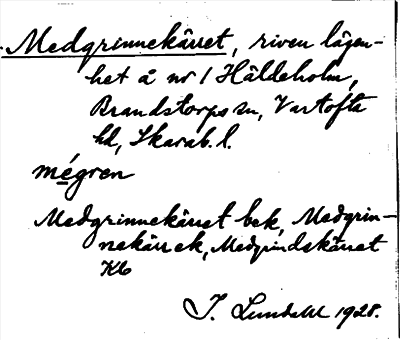 Medgrinnekärret, riven lägen-
het å nr 1 Häldeholm,
Brandstorps sn, Vartofta
hd, Skarab. l.
mégren
Medgrinnekärret bek, Medgrin-
nekärr ek, Medgrindekärret
Kb
I. Lundahl 1928.